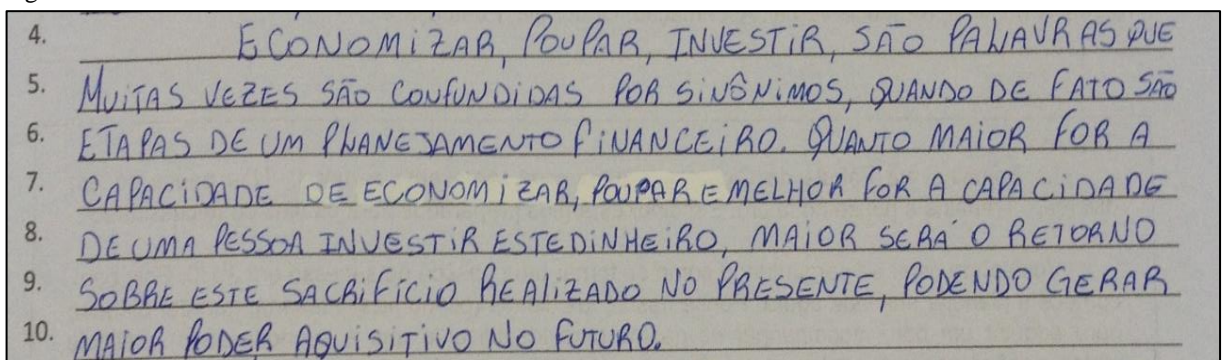 4. ECONOMIZAR, POUPAR, INVESTIR, SÃO PALAVRAS QUE
5. MUITAS VEZES SÃO CONFUNDIDAS POR SINÔNIMOS, QUANDO DE FATO SÃO
6. ETAPAS DE UM PLANEJAMENTO FINANCEIRO. QUANTO MAIOR FOR A
7. CAPACIDADE DE ECONOMIZAR, POUPAR E MELHOR FOR A CAPACIDADE
8. DE UMA PESSOA INVESTIR ESTE DINHEIRO, MAIOR SERÁ O RETORNO
9. SOBRE ESTE SACRIFÍCIO REALIZADO NO PRESENTE, PODENDO GERAR
10. MAIOR PODER AQUISITIVO NO FUTURO.